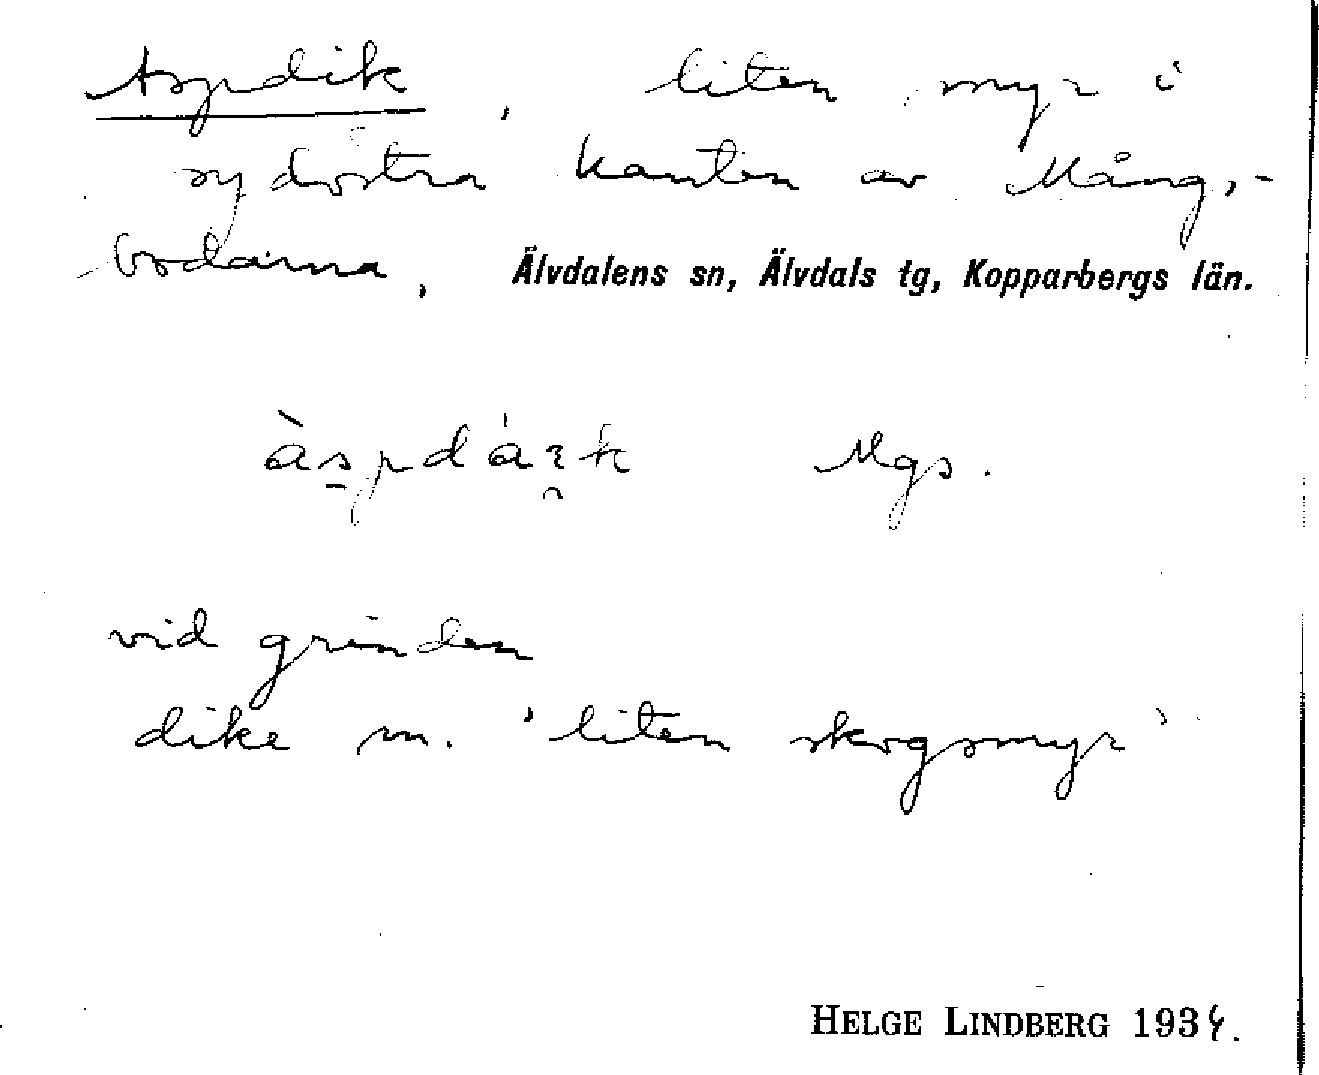 Aspdik, liten myr i
sydöstra kanten av Mångs-
bodarna, Älvdalens sn, Älvdals tg, Kopparbergs län.
Mgs.
vid grinden
dike m. 'liten skogsmyr'
HELGE LINDBERG 1934.